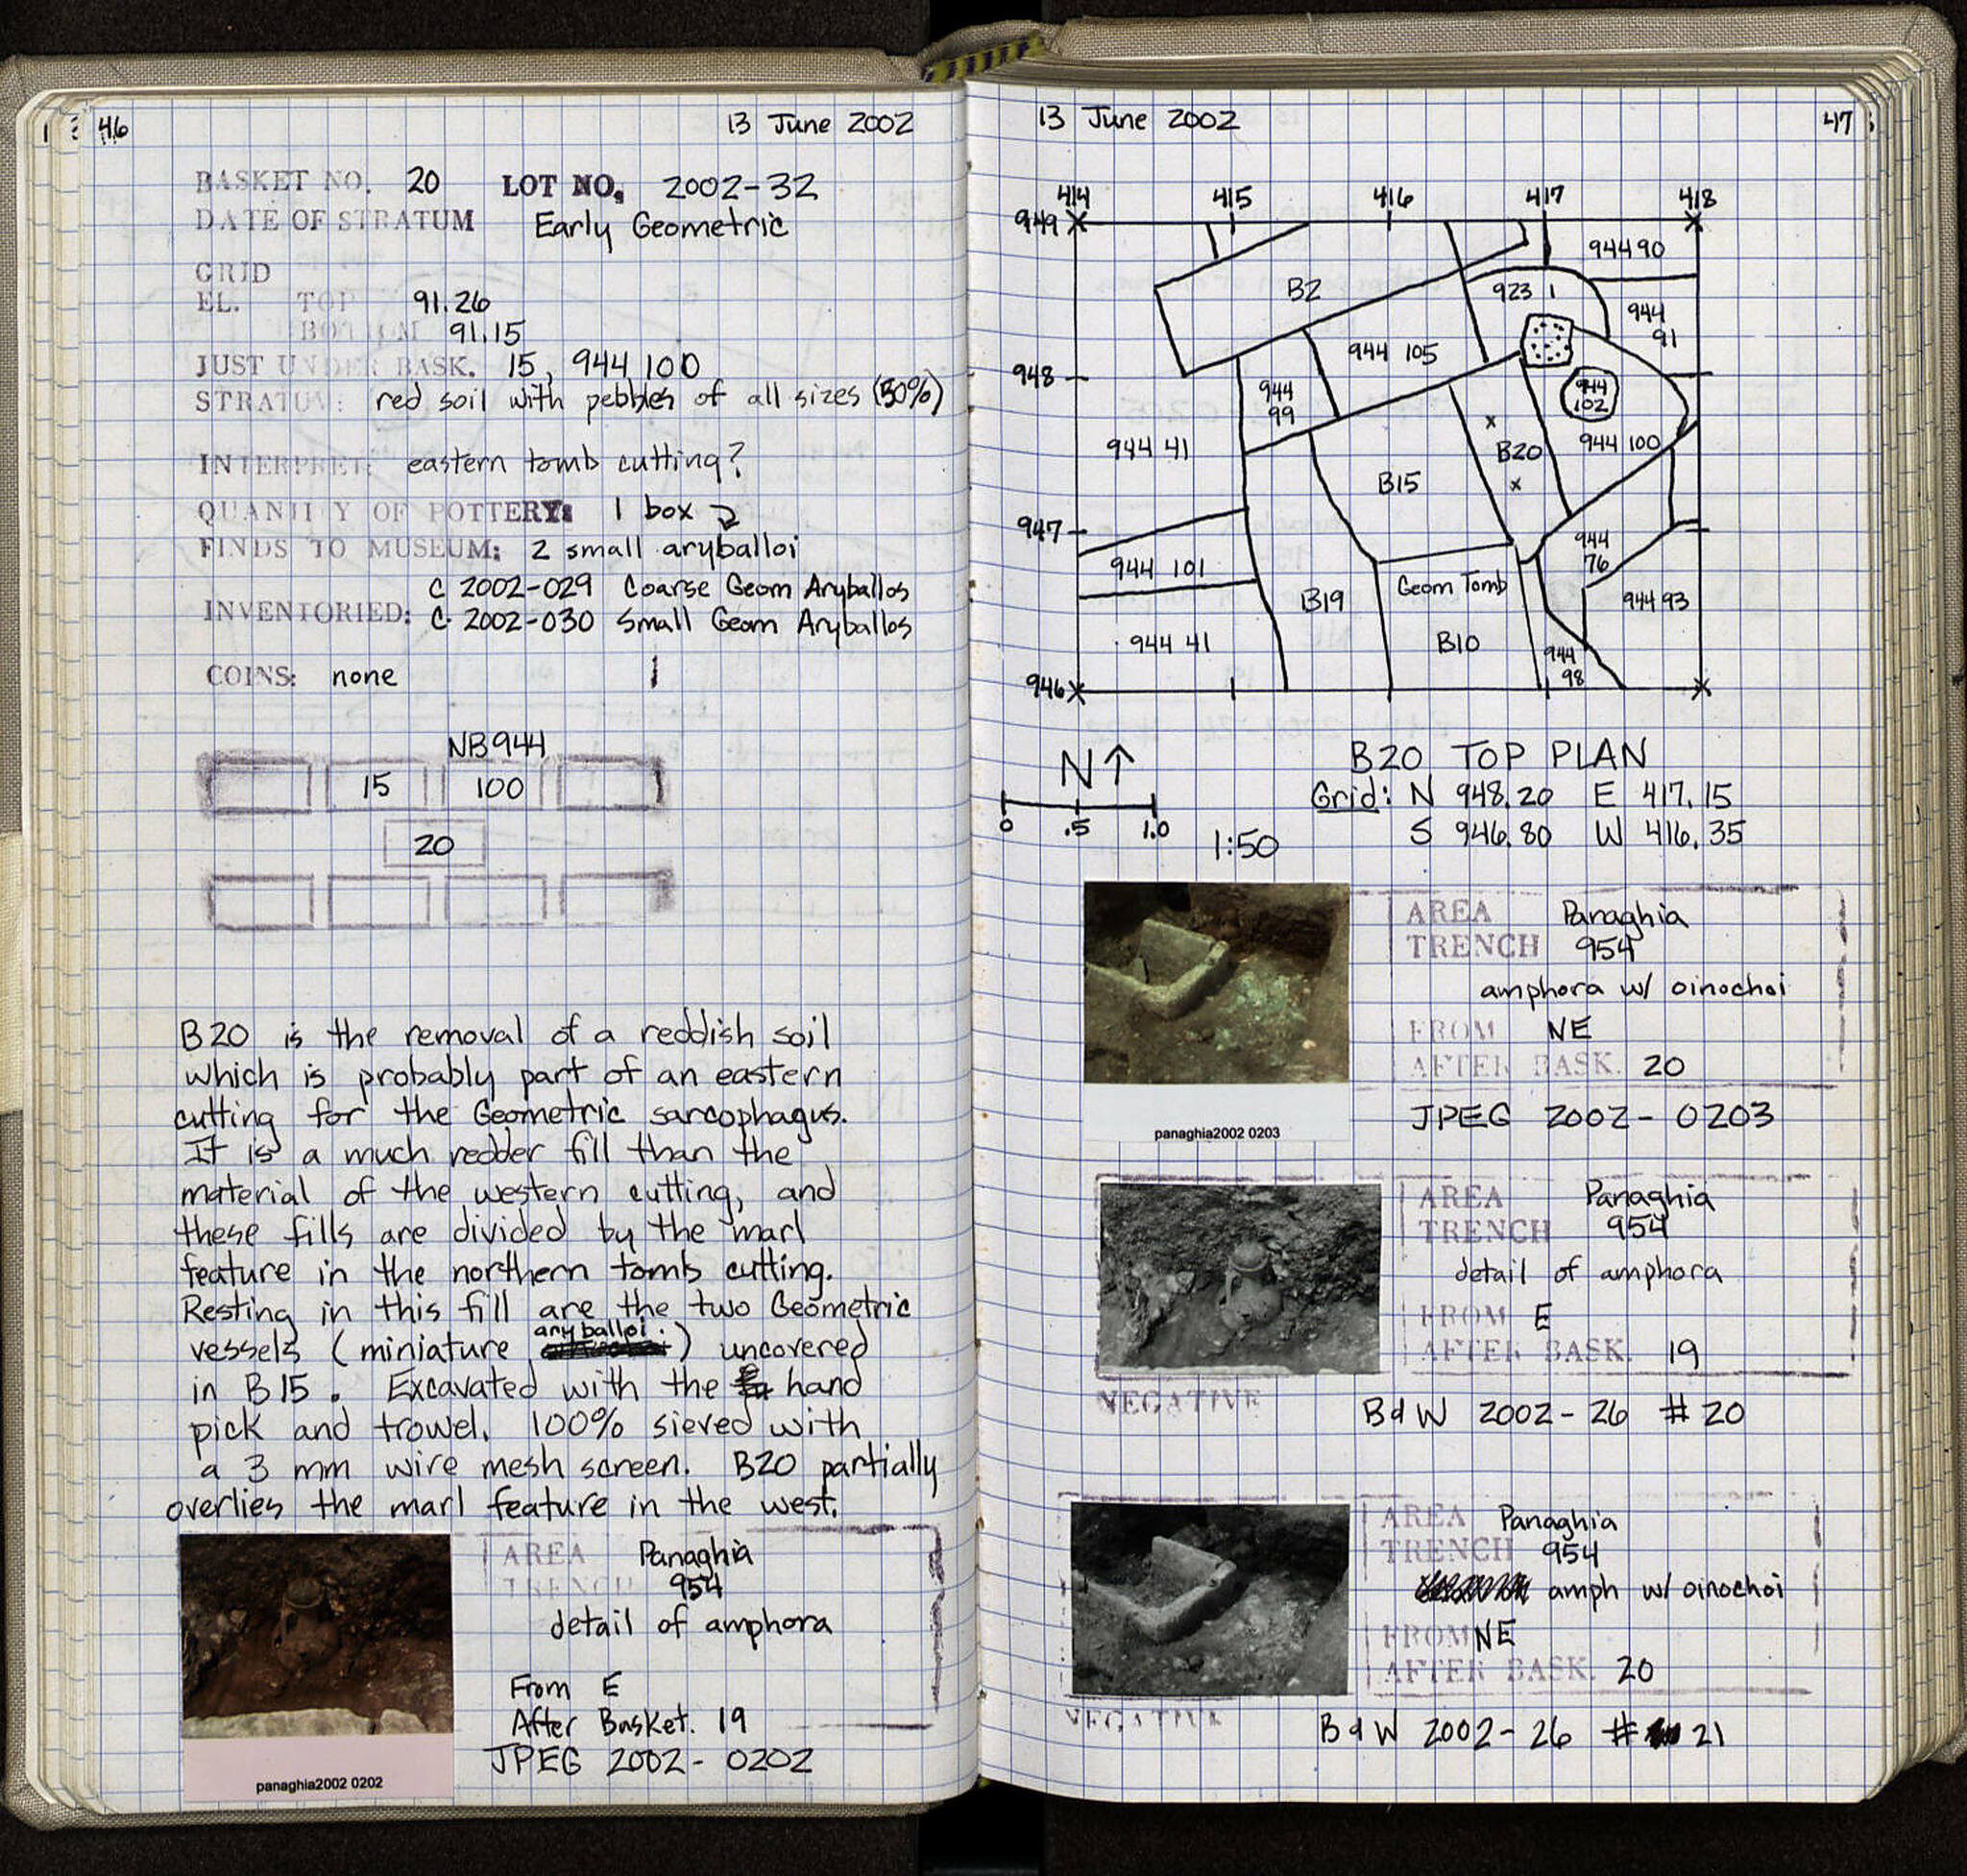 46
13 June 2002
BASKET NO. 20 LOT NO. 2002-32
DATE OF STRATUM Early Geometric
GRID
EL. TOP 91.26
BOTTOM 91.15
JUST UNDER BASK. 15, 944 100
STRATUM: red soil with pebbles of all sizes (50%)
INTERPRET: eastern tomb cutting?
QUANTITY OF POTTERY: 1 box
FINDS TO MUSEUM: 2 small aryballoi
C 2002-029 Coarse Geom Aryballos
INVENTORIED: C 2002-030 Small Geom Aryballos
COINS: none
NB944
15 100
20
B20 is the removal of a reddish soil
which is probably part of an eastern
cutting for the Geometric sarcophagus.
It is a much redder fill than the
material of the western cutting, and
these fills are divided by the marl
feature in the northern tomb cutting.
Resting in this fill are the two Geometric
vessels (miniature aryballoi) uncovered
in B15. Excavated with the hand
pick and trowel. 100% sieved with
a 3 mm wire mesh screen. B20 partially
overlies the marl feature in the west.
AREA Panaghia
TRENCH 954
detail of amphora
From E
After Basket. 19
JPEG 2002-0202
panaghia2002 0202
13 June 2002
47
414 415 416 417 418
949
944 90
B2
923 1
944
91
944 105
948
944
99
944
102
944 41
B20
944 100
B15
947
944
76
944 101
Geom Tomb
B19
944 93
944 41
B10
944
98
946
N↑
B20 TOP PLAN
Grid: N 948.20 E 417.15
S 946.80 W 416.35
0 .5 1.0
1:50
AREA Panaghia
TRENCH 954
amphora w/ oinochoi
FROM NE
AFTER BASK. 20
JPEG 2002-0203
panaghia2002 0203
AREA Panaghia
TRENCH 954
detail of amphora
FROM E
AFTER BASK. 19
NEGATIVE
B&W 2002-26 #20
AREA Panaghia
TRENCH 954
amph w/ oinochoi
FROM NE
AFTER BASK. 20
NEGATIVE
B&W 2002-26 # 21